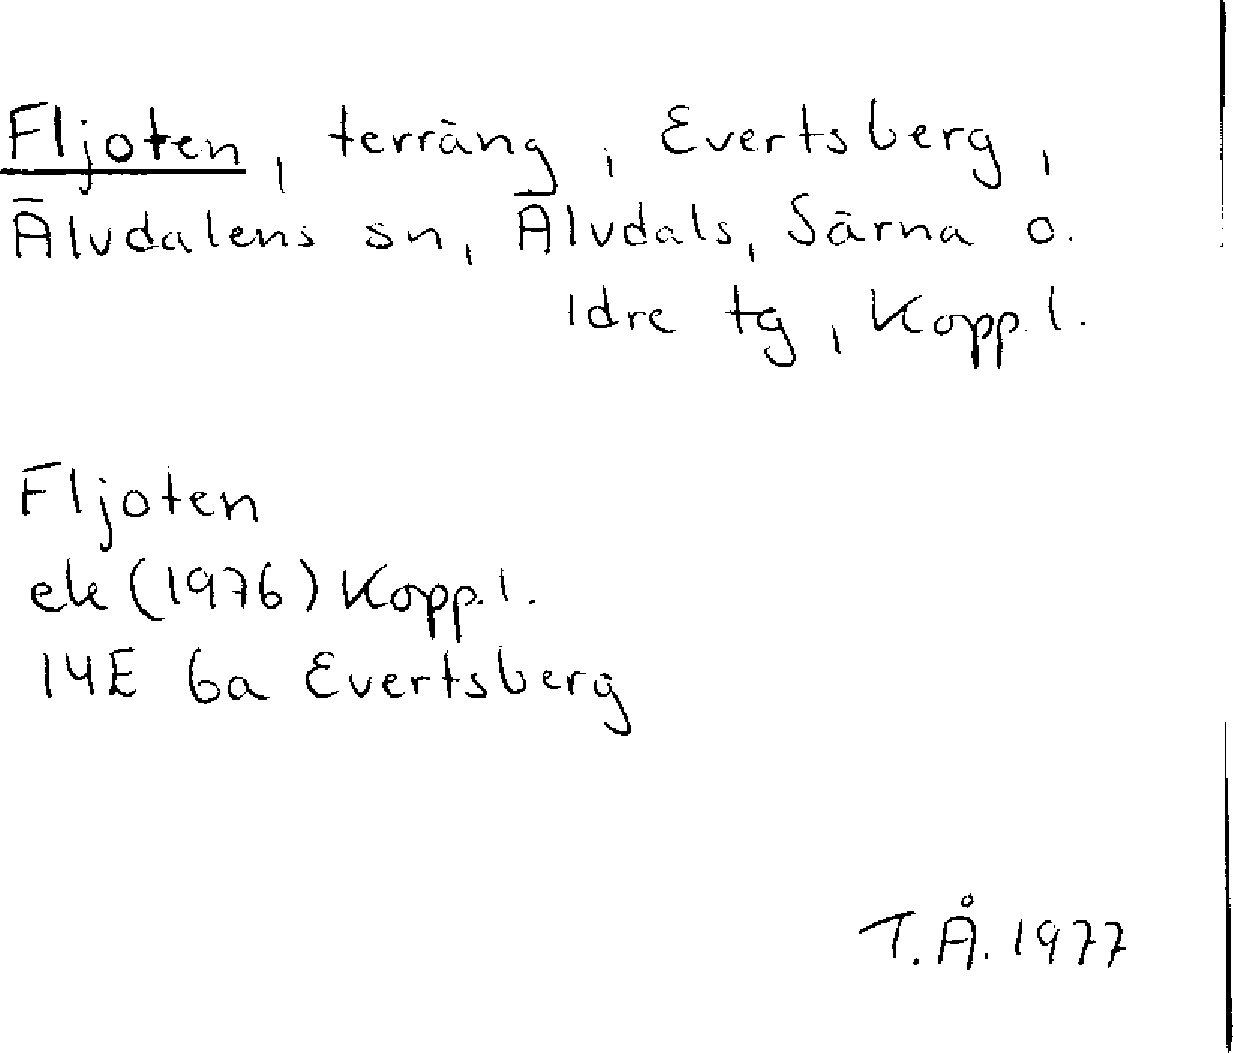 Fljoten, terräng, Evertsberg,
Älvdalens sn, Älvdals, Särna o.
Idre tg, Kopp.l.
Fljoten
ek (1976) Kopp.l.
14E 6a Evertsberg
T.Å. 1977